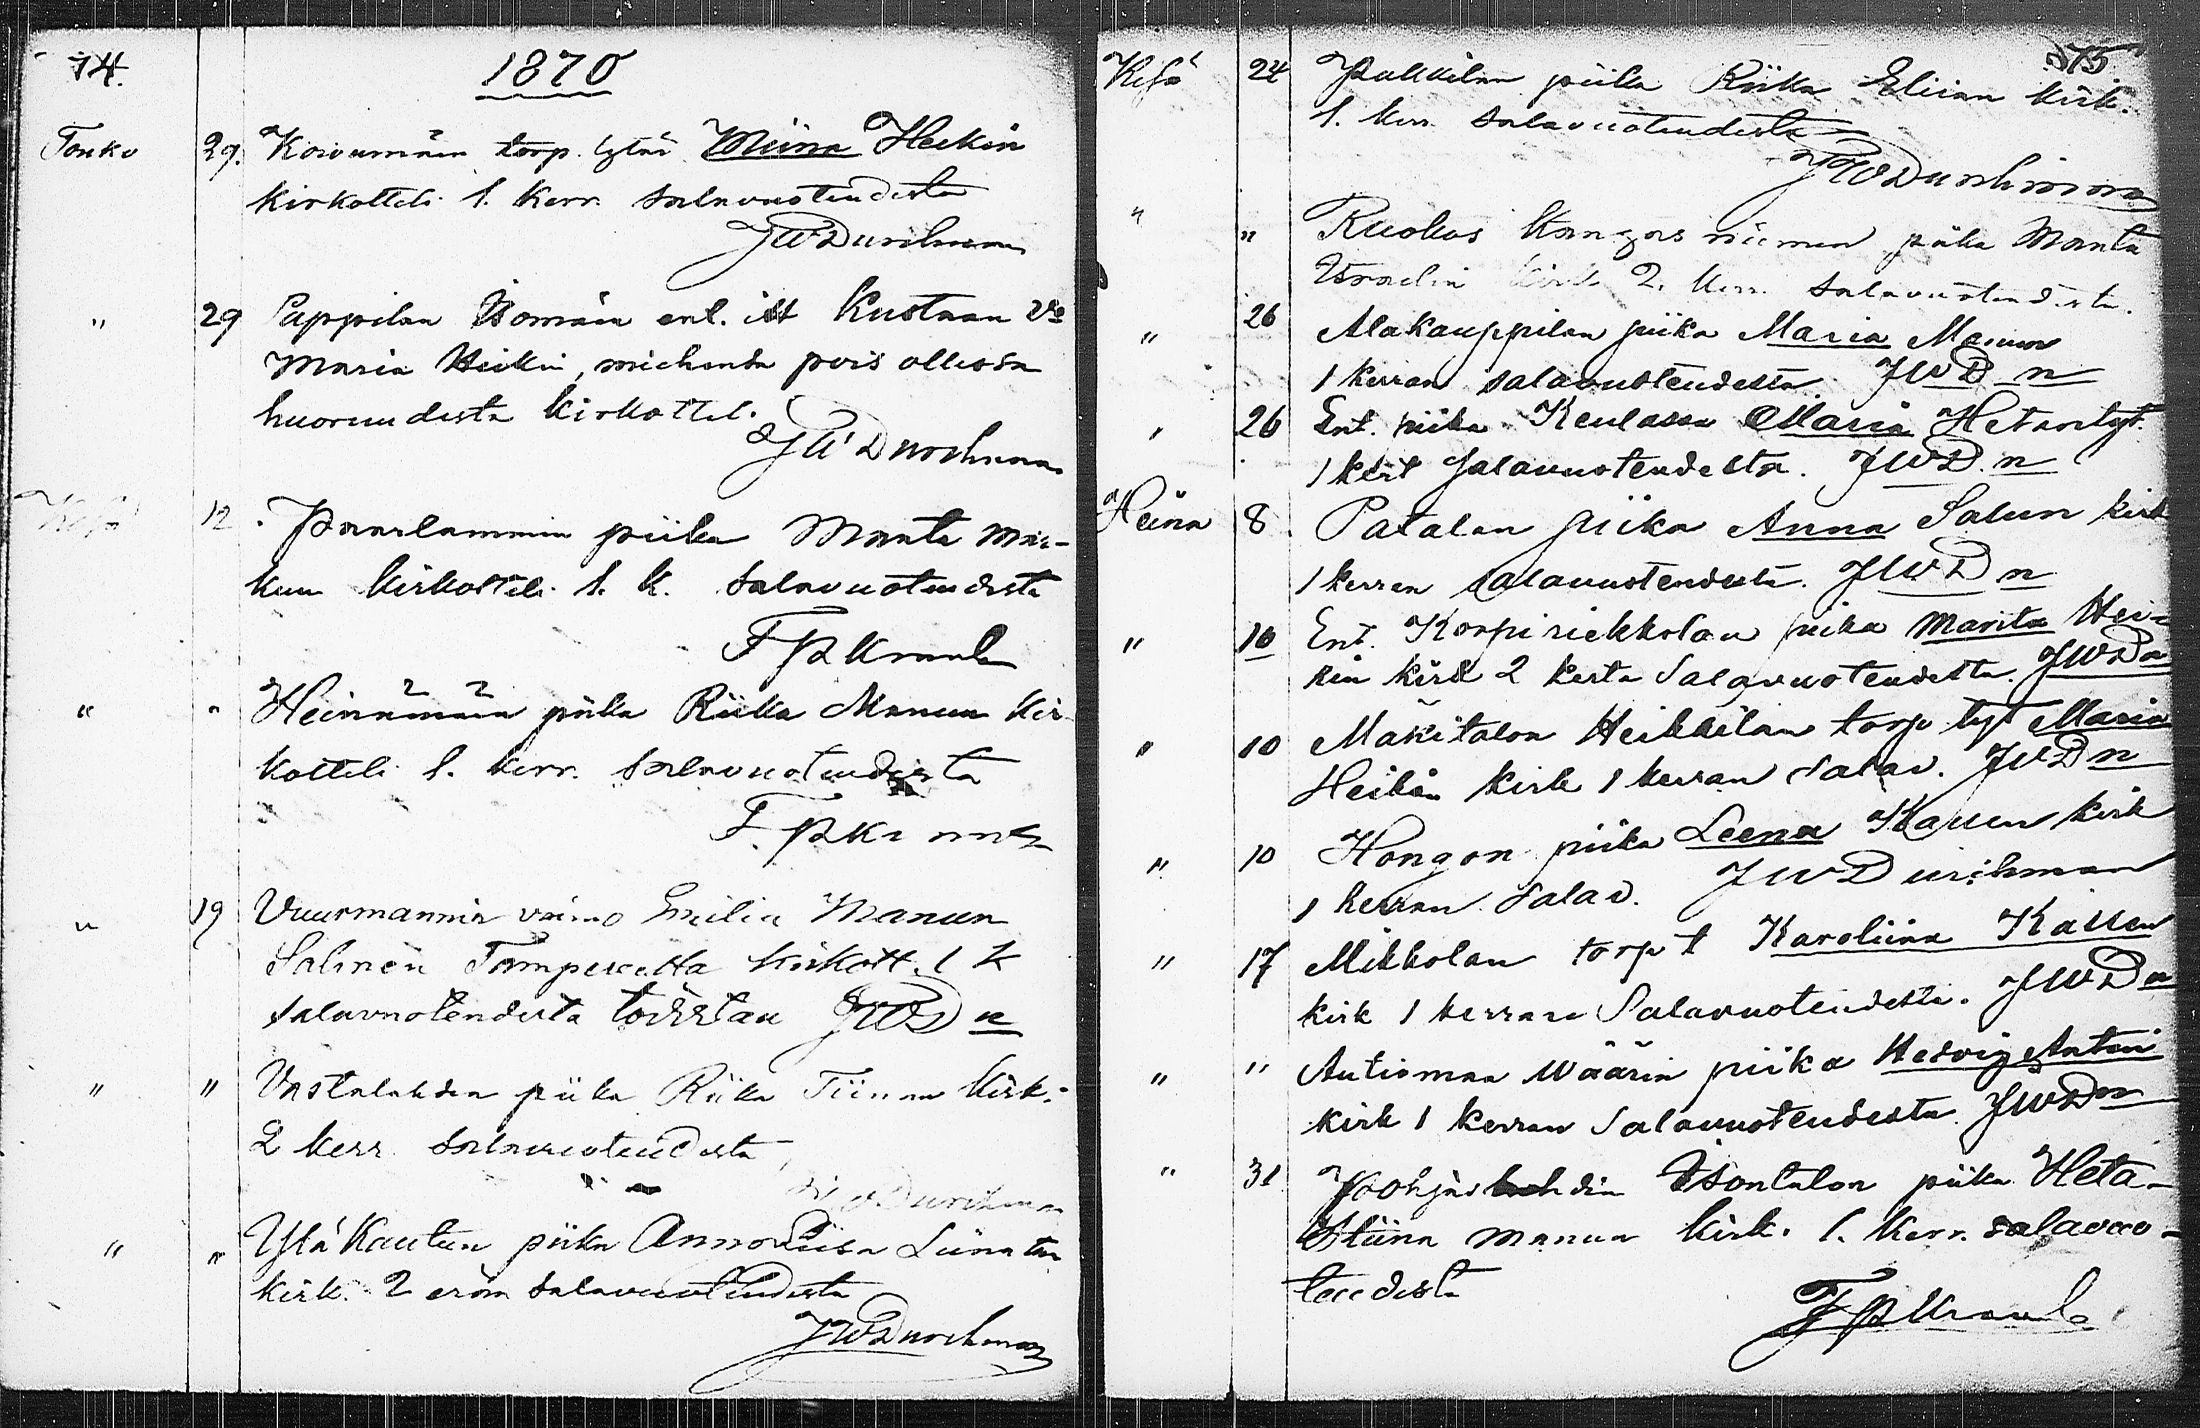 14.
1870
Touko 29. Koivumäen torp. tytär Miina Heikin
kirkotteli 1. kerr. salavuoteudesta
JWDurchman
" 29 Pappilan Isomäen ent. itt Kustaan vo
Maria Heikin, miehensä pois ollessa
huoruudesta kirkottel.
JWDurchman
Kesä 12. Paarlammin piika Manta Mar-
kun kirkotteli 1. k. salavuoteudesta
F P Kranck
" " Heinämäen piika Riika Manun kir-
kotteli 1. kerr. salavuoteudesta
F. P Kranck
" 19 Vuurmannin vaimo Emilia Manun
Salinen Tampereelta kirkott. 1 k
salavuoteudesta toistan JWD n
" " Vastalahden piika Riika Tiinan kirk.
2 kerr. salavuoteudesta
Durchman
" " Ylä Kautun piika Anna Liisa Liinatan
kirk. 2 erän salavuoteudesta
JWDurchman
75
Kesä 24 Pukkilan piika Riika Elisan kirk.
1. kerr. salavuoteudesta
JWDurchman
" " Ruokos Kangasniemen piika Manta
Israelin kirk. 2. kerr. salavuoteudesta.
" 26 Alakauppilan piika Maria Manun
1 kerran salavuoteudesta. JWD n
" 26 Ent. piika Keulassa Maria Hetantyt.
1 kert salavuoteudesta. JWD. n
Heinä 8. Patalan piika Anna Salun kirk
1 kerran salavuoteudesta. JWD n
" 10 Ent. Korpiriekkolan piika Marita Hei-
kin kirk 2 kerta salavuoteudesta. JWD n
" 10 Mäkitalon Heikkilän torp tyt Maria
Heikin kirk 1 kerran salav. JWD n
" 10 Hongon piika Leena Kallen kirk
1 kerran salav. JWDurchman
" 17 Mikkolan torp t Karoliina Kallen
kirk 1 kerran salavuoteudesta. JWD n
" " Autiomaa Wäärin piika Hedvig Antin
kirk 1 kerran salavuoteudesta. JWD n
" 31 Pohjaslahdin Isontalon piika Heta-
Stiina Manun kirk. 1. kerr. salavuo-
teudesta
F P Kranck